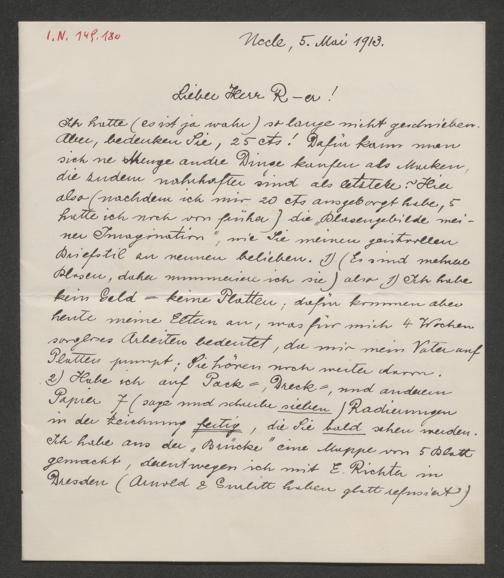 I.N. 149.180
Nocle, 5. Mai 1913.
Lieber Herr R–er!
Ich hatte (es ist ja wahr) so lange nicht geschrieben.
Aber, bedenken Sie, 25 cts! Dafür kann man
sich ne Menge andre Dinge kaufen als Marken,
die zudem nahrhafter sind als letztere. Hier
also (nachdem ich mir 20 cts ausgeborgt habe, 5
hatte ich noch von früher) die „Blasengebilde mei-
ner Imagination", wie Sie meinen geistvollen
Briefstil zu nennen belieben. 1) (Es sind mehrere
Blasen, daher nummeriere ich sie) also 1) Ich habe
kein Geld = keine Platten; dafür kommen aber
heute meine Eltern an, was für mich 4 Wochen
sorgloses Arbeiten bedeutet, da mir mein Vater auf
Platten pumpt; Sie hören noch weiter davon.
2) Habe ich auf Pack=, Dreck=, und anderem
Papier 7 (sage und schreibe sieben) Radierungen
in der Zeichnung fertig, die Sie bald sehen werden.
Ich habe aus der „Brücke" eine Mappe von 5 Blatt
gemacht, derentwegen ich mit E. Richter in
Dresden (Arnold & Gurlitt haben glatt refusiert)